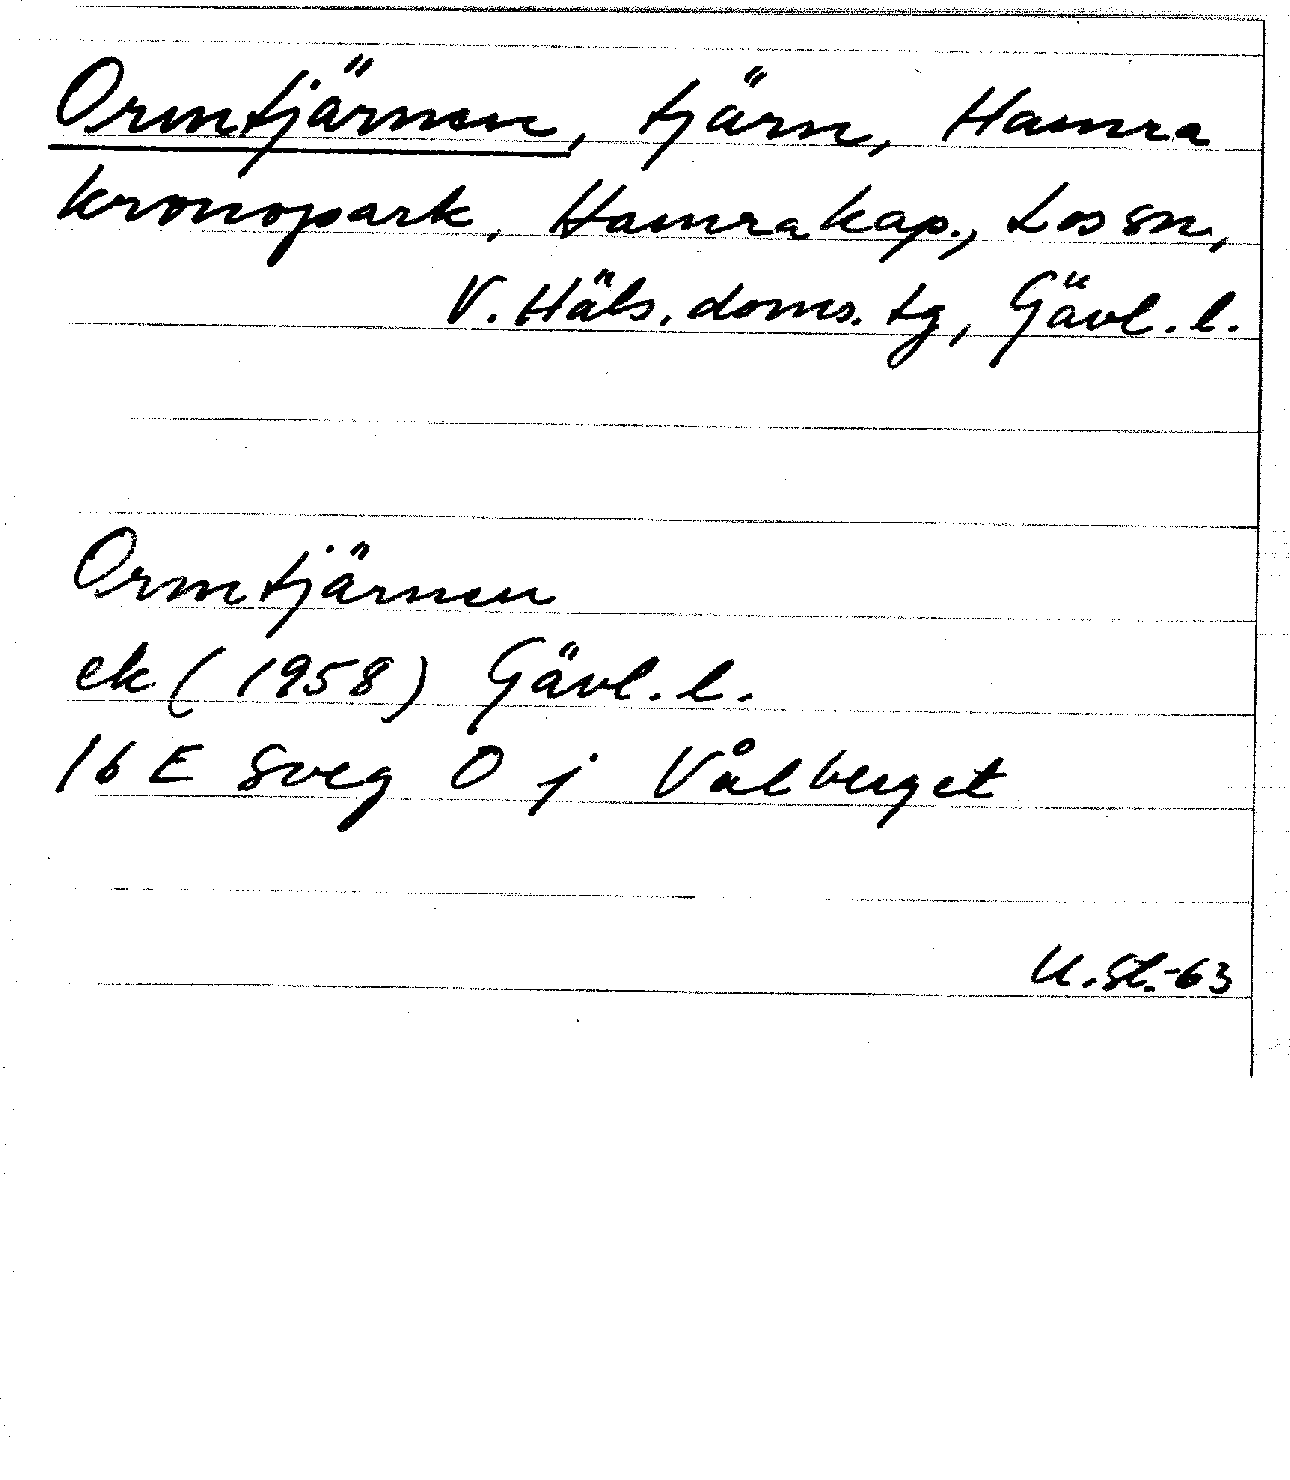 Ormtjärnen, tjärn, Hamra
kronopark, Hamra kap., Los sn,
V. Häls. doms. tg, Gävl. l.
Ormtjärnen
ek (1958) Gävl. l.
16 E Sveg O j Vålberget
U. St.-63